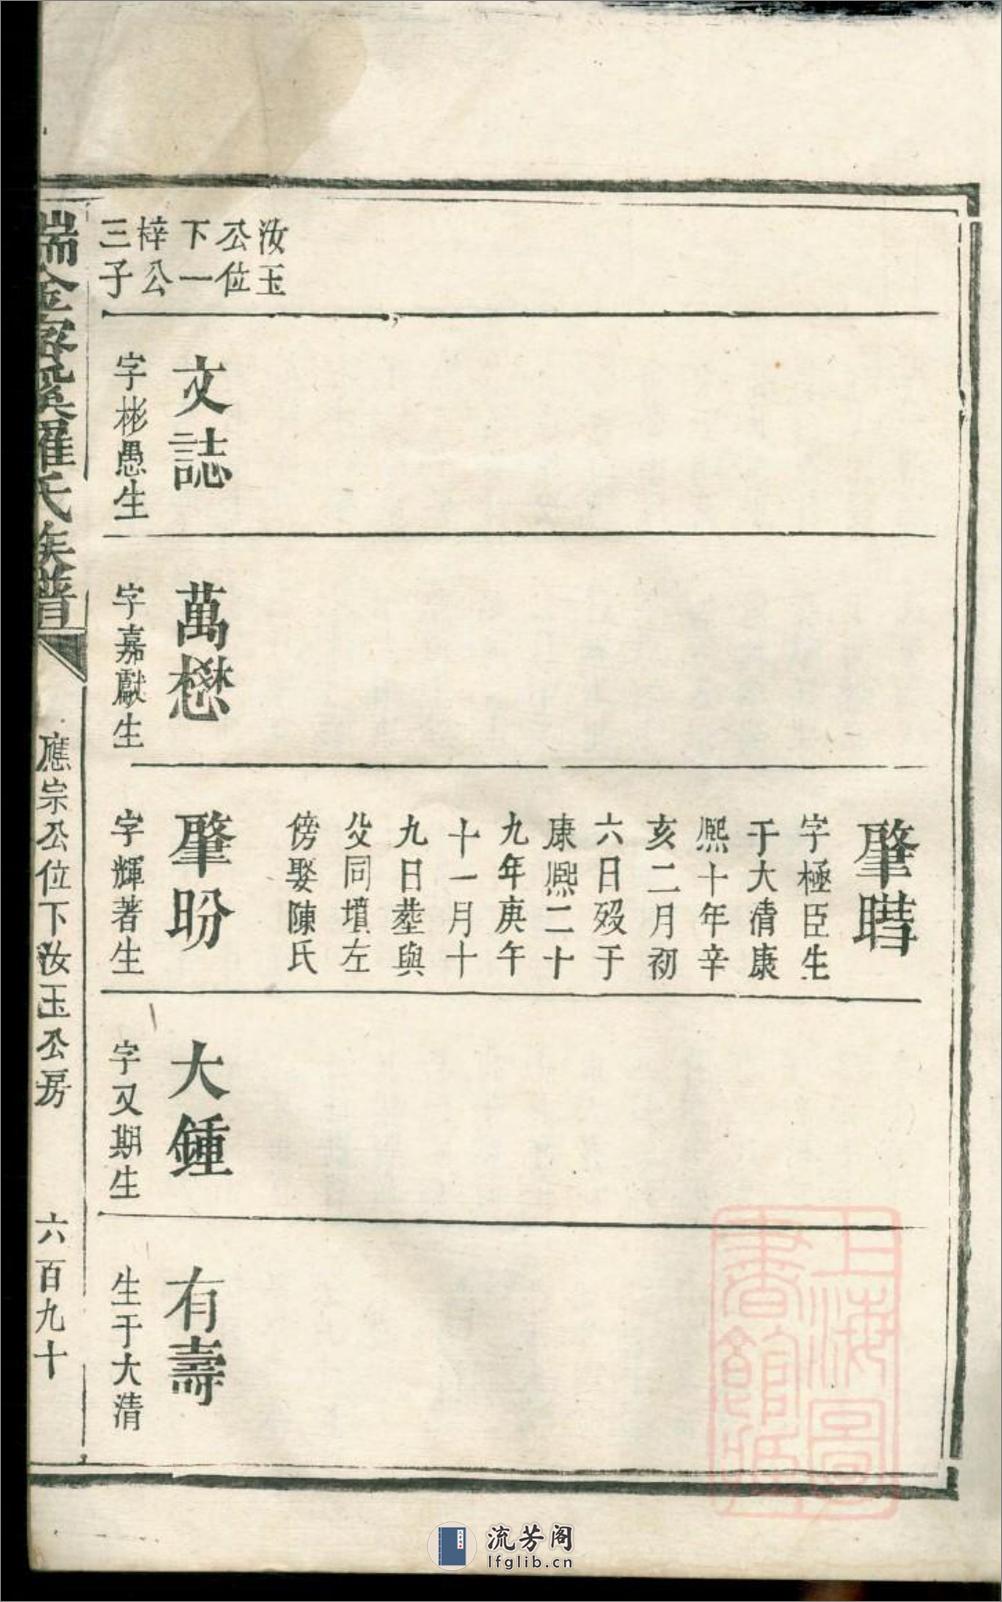 汝玉
公位
下一
梓公
三子
文誌
字彬愚生
萬懋
字嘉獻生
肇㬝
字極臣生
于大清康
熙十年辛
亥二月初
六日歿于
康熙二十
九年庚午
十一月十
九日塟與
父同墳左
傍娶陳氏
肇昐
字輝著生
大鍾
字又期生
有壽
生于大清
瑞金密溪羅氏族譜
應宗公位下汝玉公房
六百九十
上海圖書館藏
流芳阁
lfglib.cn